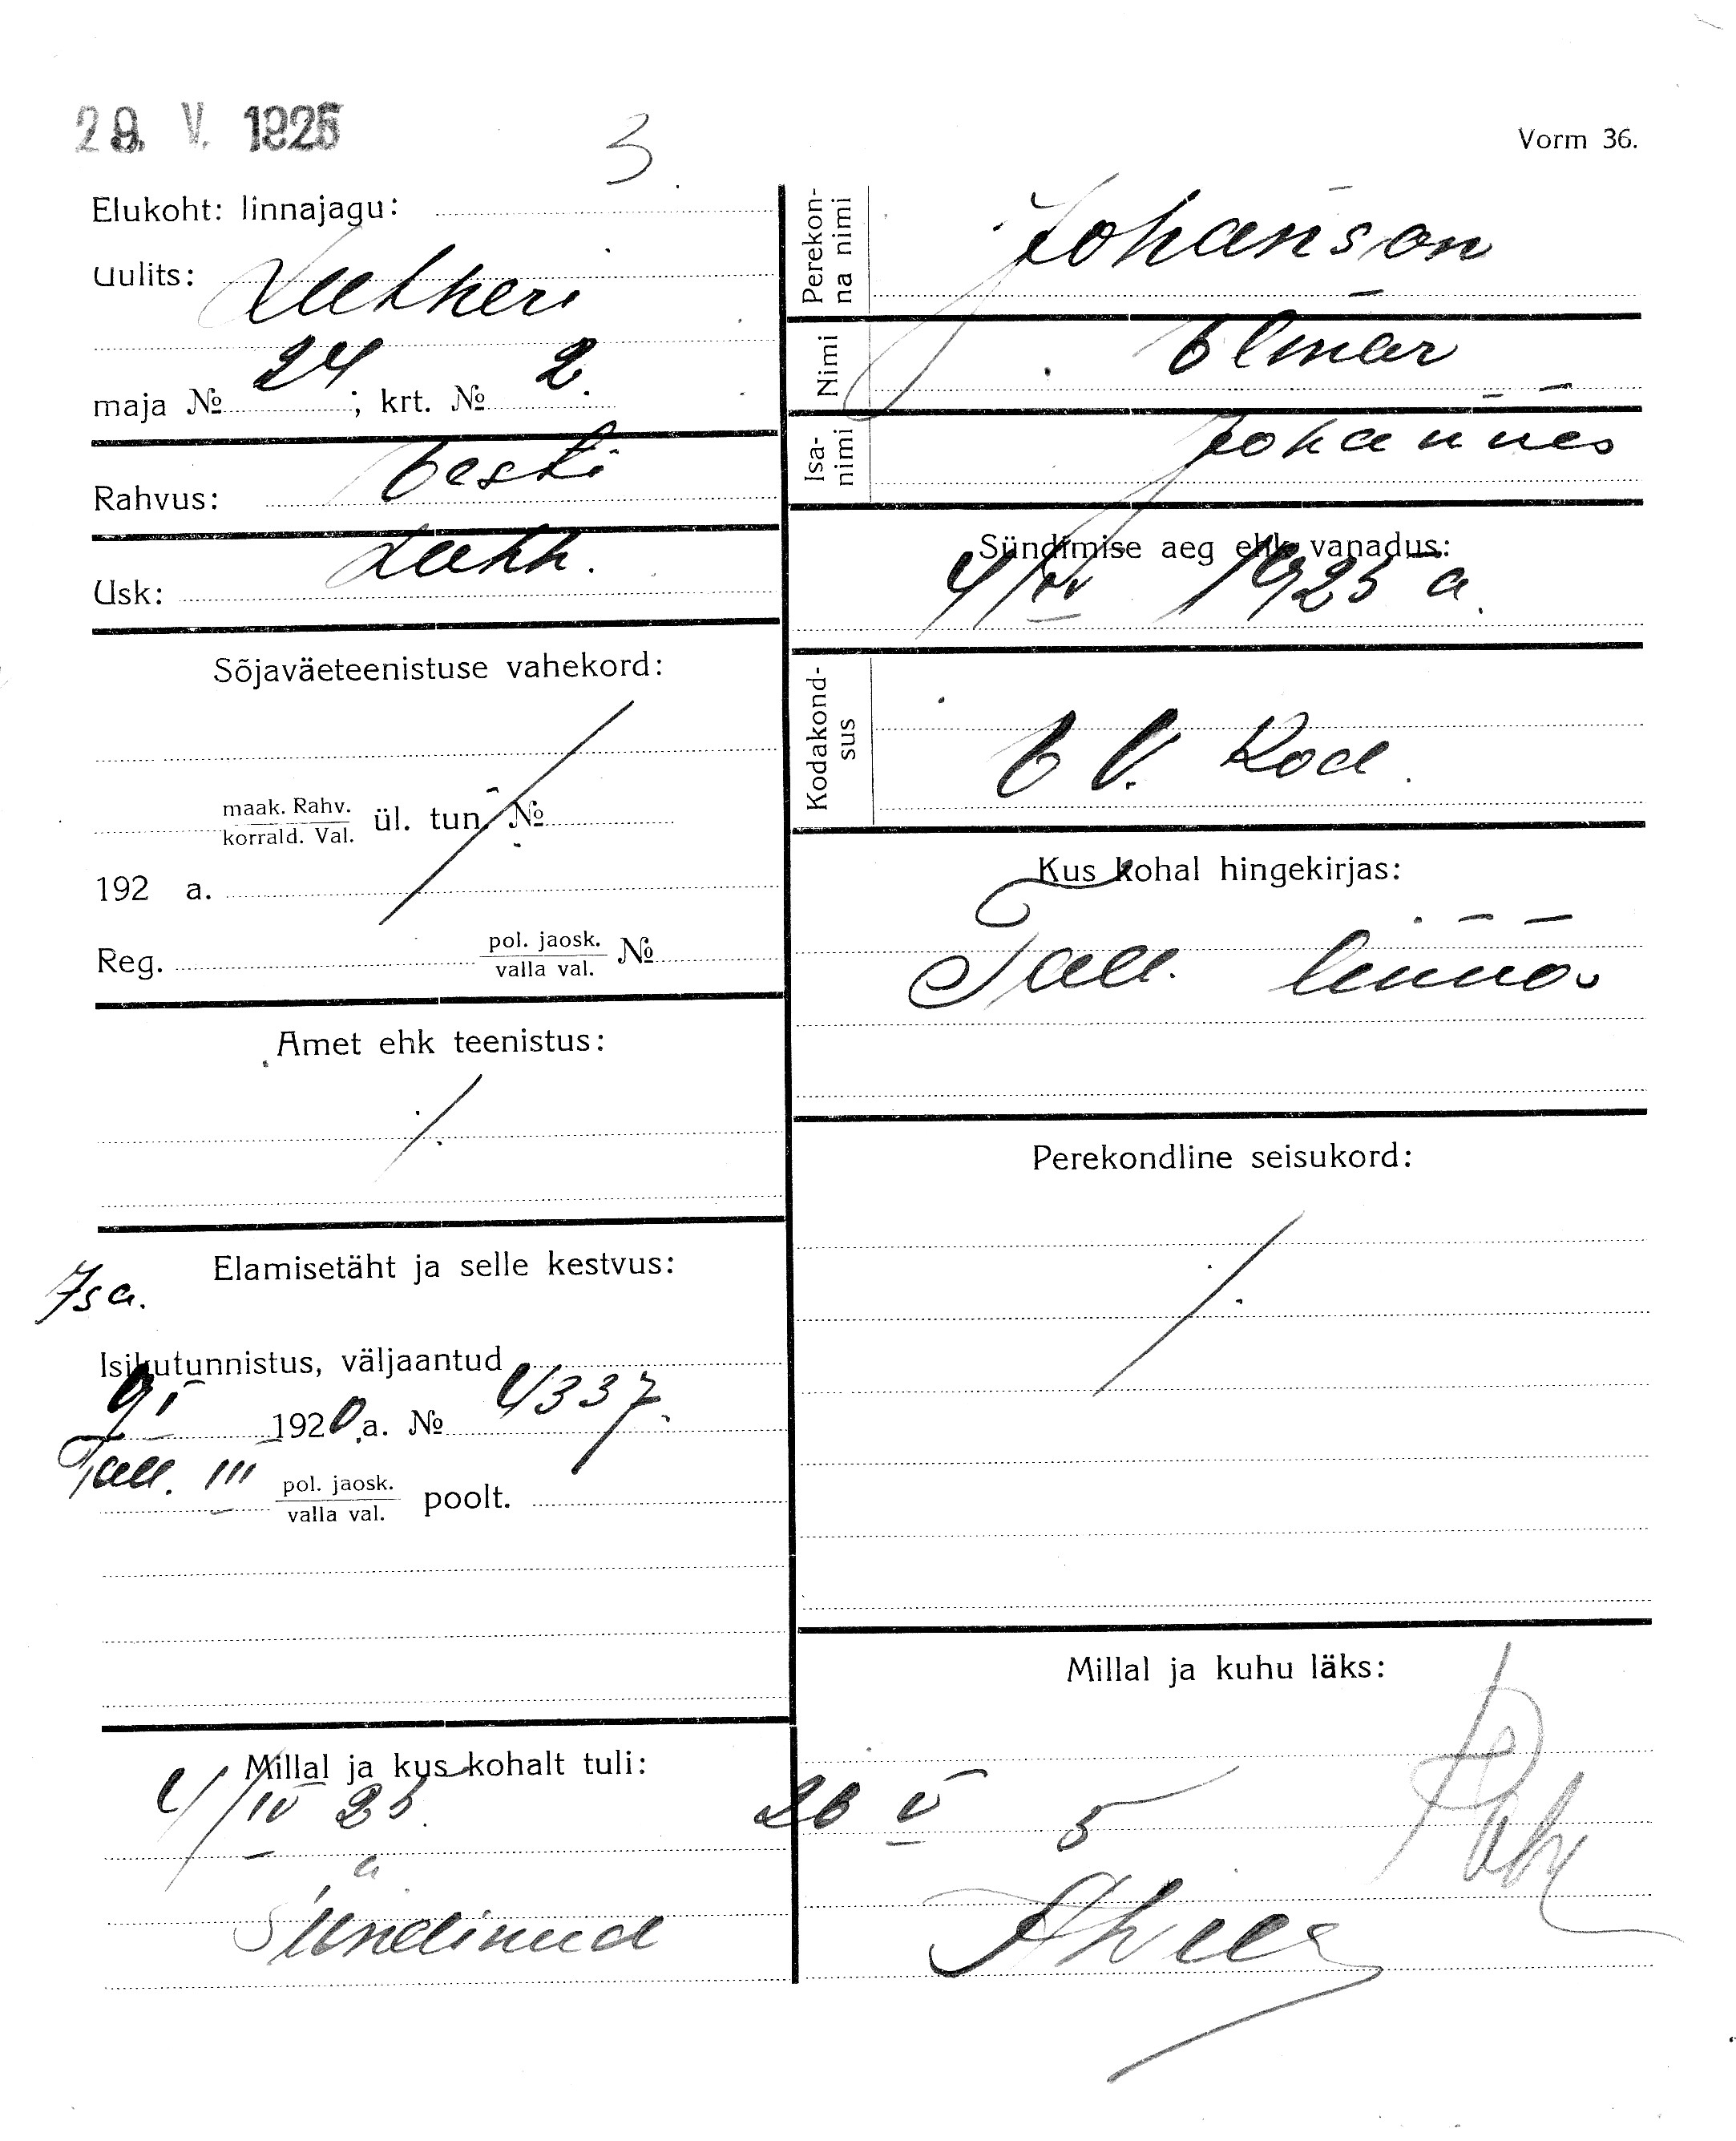 29. V. 1925
3.
Vorm 36.
Elukoht: linnajagu:
Uulits: Lutheri
maja № 24; krt. № 2.
Rahvus: Eesti
Usk: Luth.
Sõjaväeteenistuse vahekord:
maak. Rahv.
korrald. Val. ül. tun. №
192 a.
Reg. pol. jaosk.
valla val. №
Amet ehk teenistus:
Elamisetäht ja selle kestvus:
Isa.
Isikutunnistus, väljaantud
9 I 1920 a. № 4337.
Tall. III pol. jaosk.
valla val. poolt.
Millal ja kus kohalt tuli:
4/IV 25.
a
Sündinud
Perekonna nimi
Johanson
Nimi
Elmar
Isanimi
Johannes
Sündimise aeg ehk vanadus:
4/IV 1925 a.
Kodakondsus
E V. Kod.
Kus kohal hingekirjas:
Tall. linna
Perekondline seisukord:
Millal ja kuhu läks:
26 V 5